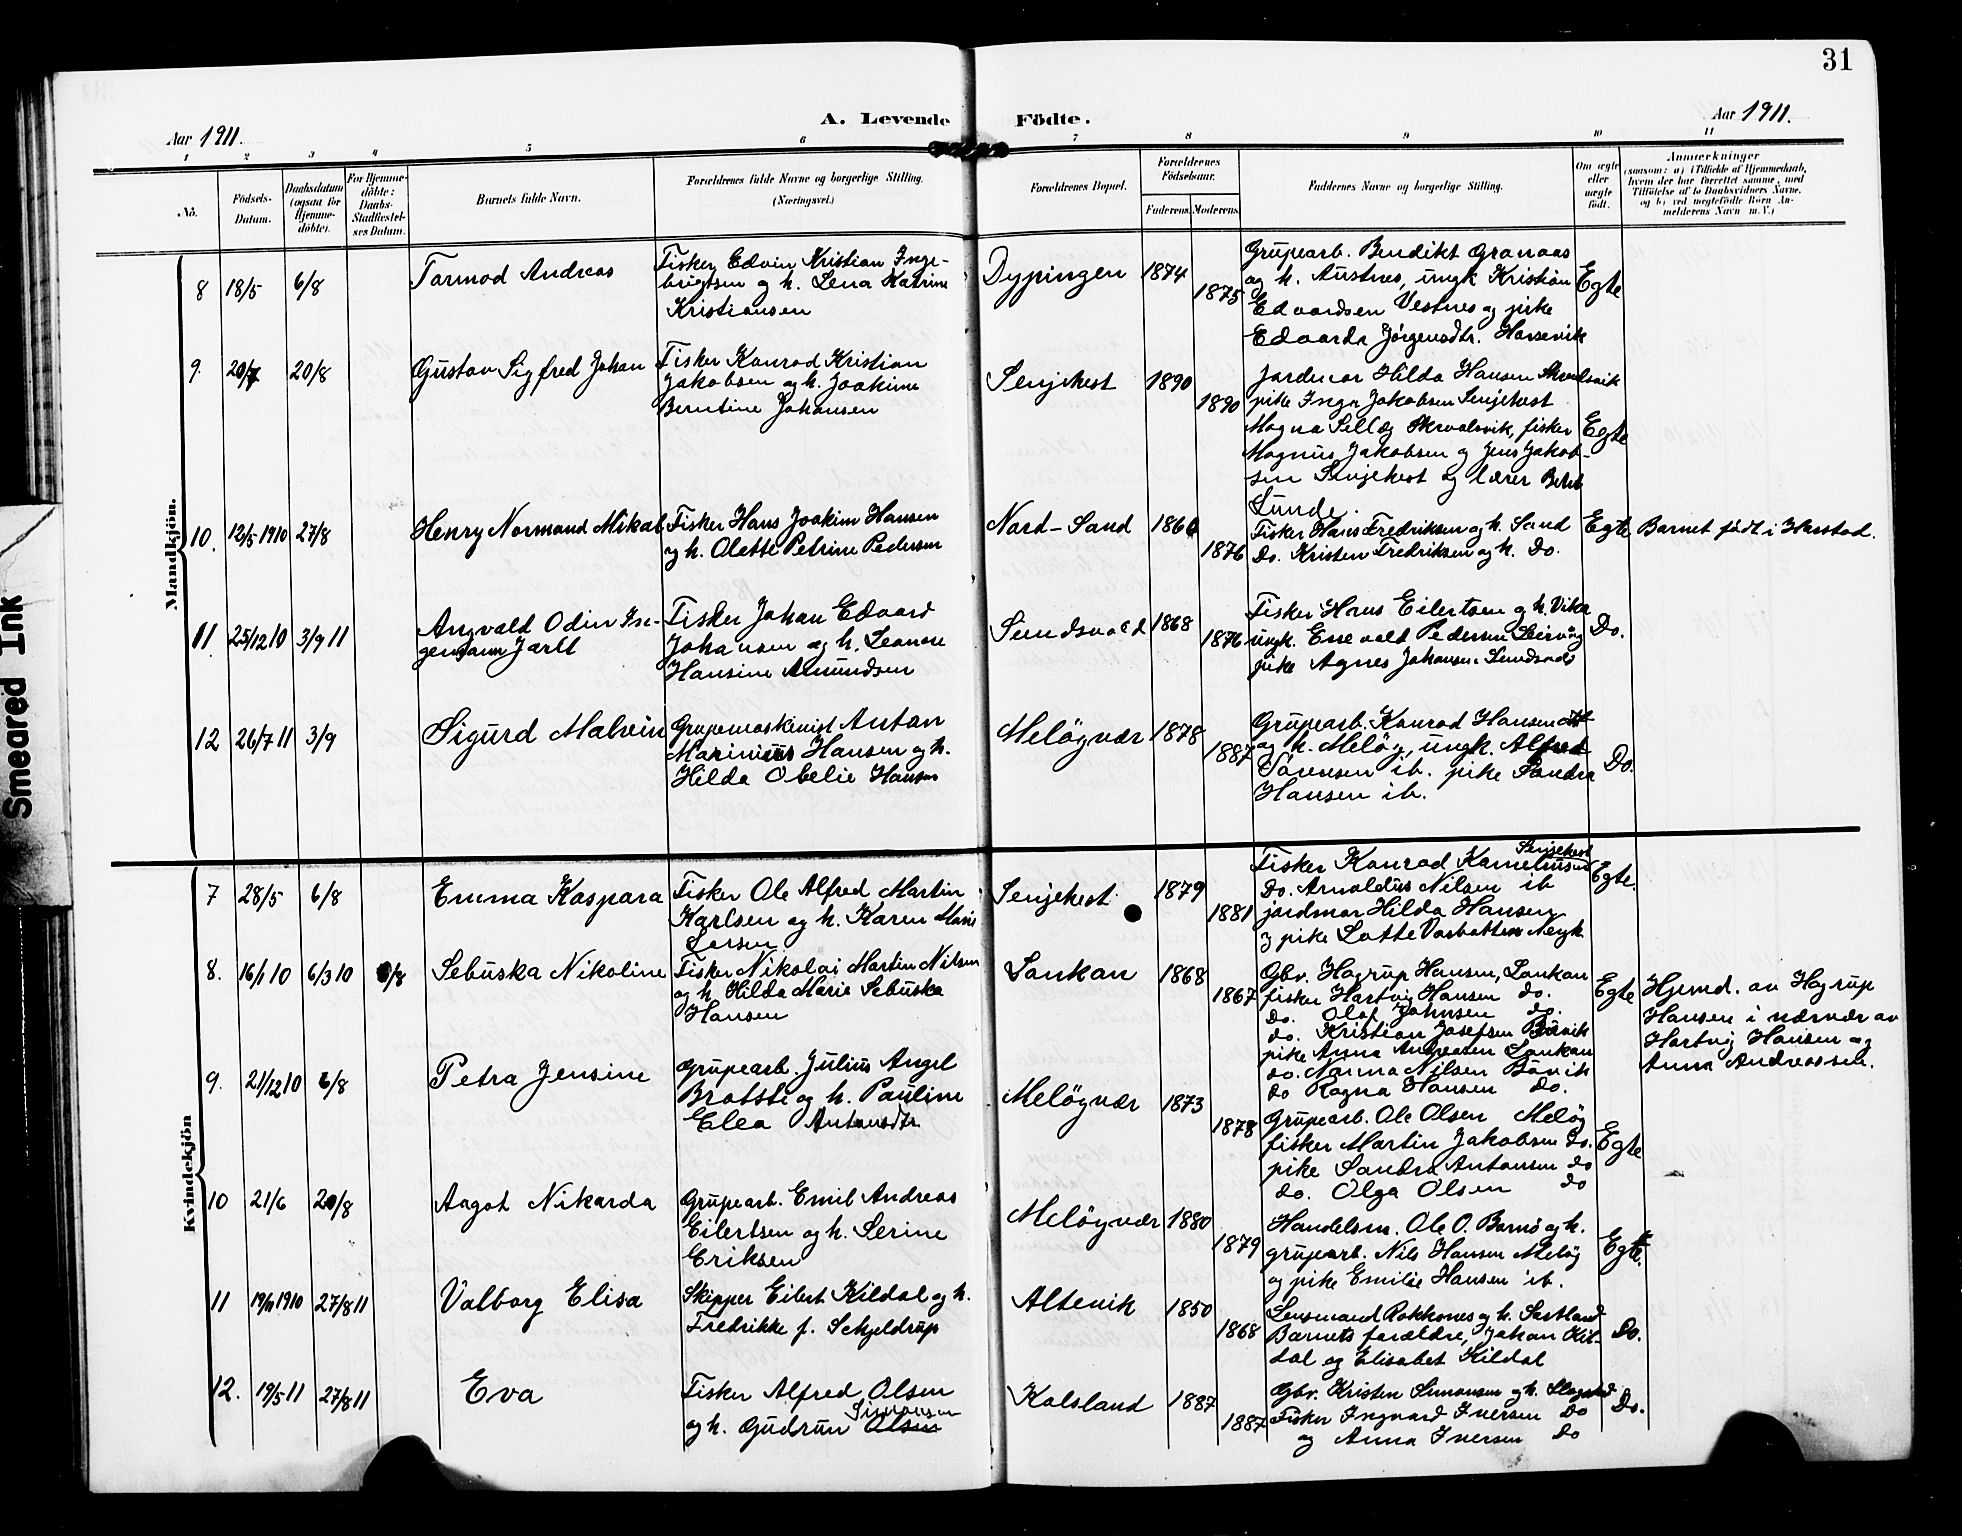 31
A. Levende Födte.
Aar 1911.
Aar 1911.
1 2 3 4 5 6 7 8 9 10 11
No.
Födsels-
Datum.
Daabsdatum
(ogsaa for
Hjemme-
döbte).
For Hjemme-
döbte:
Daabs-
Stadfæstel-
ses Datum.
Barnets fulde Navn.
Forældrenes fulde Navne og borgerlige Stilling.
(Næringsvei.)
Forældrenes Bopæl.
Forældrenes
Födselsaar.
Faderens. Moderens.
Faddernes Navne og borgerlige Stilling.
Om ægte
eller
uægte
født.
Anmærkninger
(saasom: a) i Tilfælde af Hjemmedaab,
hvem der har forrettet samme, med
Tilföielse af to Daabsvidners Navne,
og b) ved uegtefödte Börn An-
melderens Navn m. V.)
Mandkjön.
8 18/5 6/8 Tarmod Andreas
Fisker Edvin Kristian Inge-
brigtsen og h. Lena Katrine
Kristiansen
Dypingen 1874 1875
Grupearb. Bendikt Granaas
og h. Austnes, ungk Kristian
Edvardsen Vestnes og pike
Edvarda Jörgensdtr.
Egte
9. 20/7 20/8 Gustav Sigfred Johan
Fisker Konrad Kristian
Jakobsen og h. Joakime
Berntine Johansen
Senjehest 1890 1890
jordmor Hilda Hansen Skrolsvik
pike Inga Jakobsen Senjehest
Magna Skrolsvik, fisker
Magnus Jakobsen og Jens Jakob-
sen Senjehest og lærer
Lunde.
Egte
10. 12/5 1910 27/8 Henry Normand Mikal
Fisker Hans Joakim Hansen
og h. Olette Petrine Pedersen
Nord-Sand 1876
Fisker Hans Fredriksen og h. Sand
Do. Kristen Fredriksen og h. Do.
Egte Barnet født i Harstad.
11 25/12 10 3/9 11 Angvald Odin In-
gemann Jarll
Fisker Johan Edvard
Johansen og h. Leonore
Hansine Amundsen
Sundsvold 1868 1876
Fisker Hans Eilertsen og h. Vika
ungk. Enevald Pedersen
pike Agnes Johansen Sundsvold
Do.
12 26/7 11 3/9 Sigurd Malvin
Grupemaskinist Anton
Marinius Hansen og h.
Hilda Obelie Hansen
Meløyvær 1878 1887
Grupearb. Konrad Hansen
og h. Meløy, ungk. Alfred
Sörensen ib. pike Sandra
Hansen ib.
Do.
Kvindekjön
7 28/5 6/8 Emma Kaspara
Fisker Ole Alfred Martin
Karlsen og h. Karen Marie
Larsen
Senjehest 1879 1881
Senjehest
Fisker Konrad Kornelius
Do. Arnoldus Nilsen ib
jordmor Hilda Hansen
og pike Lotte
Egte.
8. 16/1 10 6/3 10 6/8 Sebuska Nikoline
Fisker Nikolai Martin Nilsen
og h. Hilda Marie Sebuska
Hansen
Lankan 1868 1867
Gbr. Hagrup Hansen, Lankan
fisker Hartvig Hansen do.
Do. Olaf Johnsen do.
do. Kristian Josefsen Bövik
pike Anna Andreasen Lankan
do. Narna Nilsen Bövik
do Ragna Hansen Do.
Egte
Hjemd. av Hagrup
Hansen i nærvær av
Hartvig Hansen og
Anna Andreassen.
9. 21/12 10 6/8 Petra Jensine
Grupearb. Julius Angel
Bratsti og h. Pauline
Elea Antonsdtr
Meløyvær 1873 1878
Grupearb. Ole Olsen Meløy
fisker Martin Jakobsen Do.
pike Sandra Antonsen do
do. Olga Olsen do
Egte
10 21/6 20/8 Aagot Nikarda
Grupearb. Emil Andreas
Eilertsen og h. Serine
Eriksen
Meløyvær 1880 1879
Handelsm. Ole O. Barnö og h.
grupearb. Nils Hansen Meløy
og pike Emilie Hansen ib.
Egte.
11 19/11 1910 27/8 11 Valborg Elisa
Skipper Eilert Kildal og h.
Fredrikke f. Schjeldrup
Altevik 1850 1868
Lensmand Rokkones og h. Sørtland
Barnets forældre, Johan Kil-
dal og Elisabet Kildal
Do.
12. 19/5 11 27/8 11 Eva
Fisker Alfred Olsen
Simonsen
og h. Gudrun Olsen
Kalsland 1887 1887
Gbr. Kristen Simonsen og h.
Fisker Ingvard Iversen Do
og Anna Iversen Do
Do.
Smeared Ink